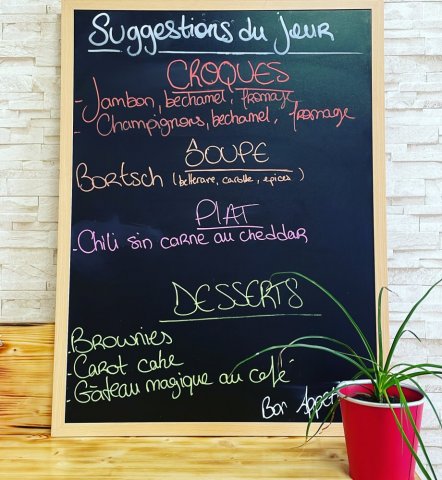 Suggestions du jour
CROQUES
- Jambon, bechamel, fromage
- Champignons, bechamel, fromage
SOUPE
Bortsch (betterave, carotte, epices)
PLAT
- Chili sin carne au cheddar
DESSERTS
- Brownies
- Carot cake
- Gâteau magique au café
Bon Appét